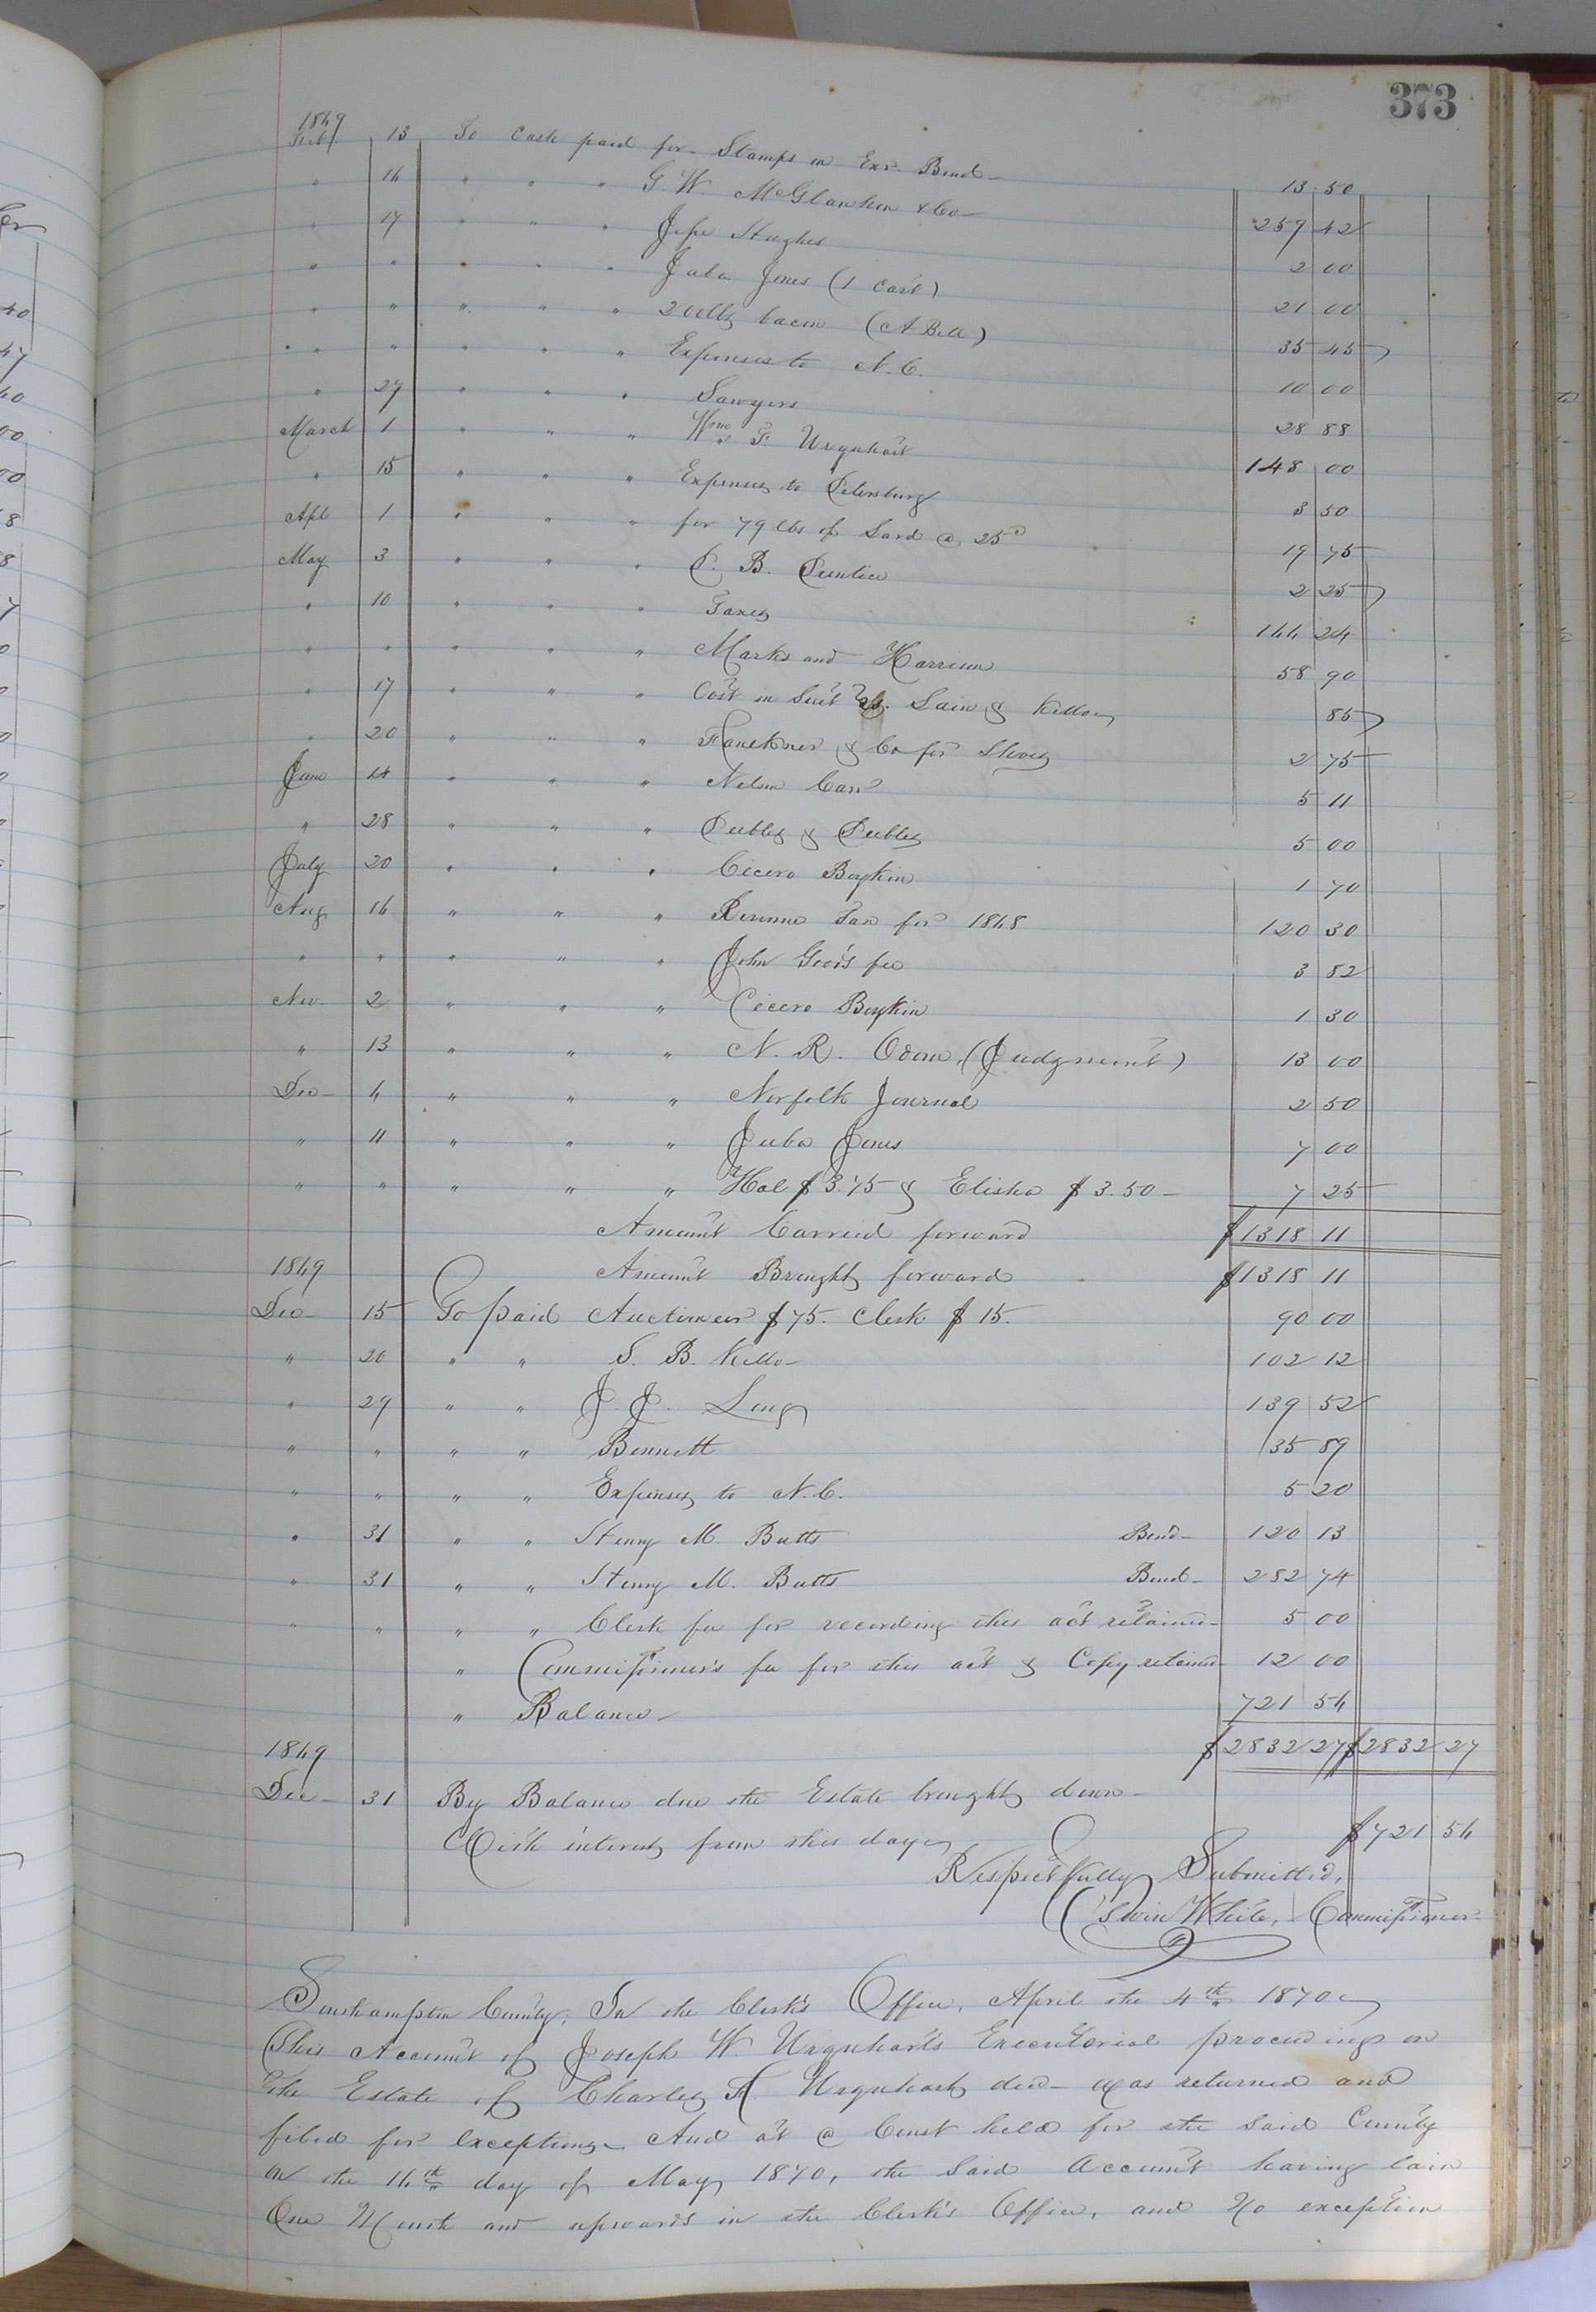 373
1869
Feb. 13 To Cash paid for Stamps on Exr. Bond 13 50
" 16 " " " G. W. McGlawhon & Co 259 42
" 17 " " " Jesse Hughes 2 00
" " " " " Juba Jones (1 Cart) 21 00
" " " " " 200lbs bacon (A Bell) 35 45
" " " " " Expenses to N. C. 10 00
" 27 " " " Sawyers 28 88
March 1 " " " Wm F. Urquhart 148 00
" 15 " " " Expenses to Petersburg 3 50
Apl 1 " " " for 79 lbs of Lard @ 25c 19 75
May 3 " " " P. B. Prentice 2 25
" 10 " " " Taxes 166 24
" " " " " Marks and Harrison 58 90
" 17 " " " Cost in Suit vs. Lain & Kello 85
" 20 " " " Faulkner & Co for Shoes 2 75
June 14 " " " Nelson Carr 5 11
" 28 " " " Peebles & Peebles 5 00
July 20 " " " Cicero Boykin 1 70
Aug 16 " " " Revenue Tax for 1868 120 30
" " " " " John Gee's fee 3 82
Nov. 2 " " " Cicero Boykin 1 30
" 13 " " " N. R. Odom (Judgment) 13 00
Dec 4 " " " Norfolk Journal 2 50
" 11 " " " Juba Jones 7 00
" " " " " Hal $3.75 & Elisha $3.50 7 25
Amount Carried forward $1318 11
1869 Amount Brought forward $1318 11
Dec 15 To paid Auctioneer $75. Clerk $15. 90 00
" 20 " " S. B. Kello 102 12
" 29 " " J. J. Long 139 52
" " " " Bennett 35 89
" " " " Expenses to N. C. 5 20
" 31 " " Henry M. Butts Bond 120 13
" 31 " " Henry M. Butts Bond 282 74
" " " " Clerk fee for recording this act retained 5 00
" Commissioner's fee for this act & Copy retained 12 00
" Balance 721 56
1869 $2832 27 $2832 27
Dec 31 By Balance due the Estate brought down
With interest from this day $721 56
Respectfully Submitted,
Edwin White, Commissioner
Southampton County: In the Clerk's Office, April the 4th 1870
This Account of Joseph W. Urquhart's Executorial proceedings on
the Estate of Charles F. Urquhart decd was returned and
filed for exceptions. And at a Court held for the said County
on the 16th day of May 1870, the said Account having lain
One Month and upwards in the Clerk's Office, and no exception